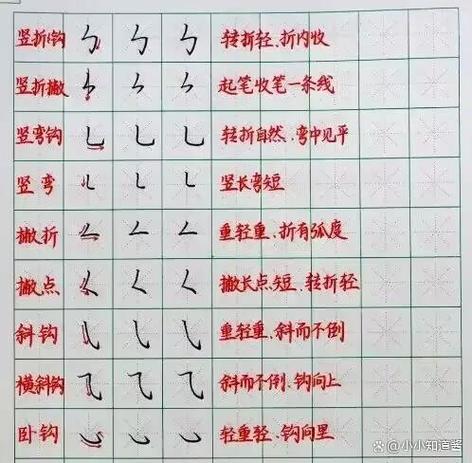 竖折折钩 转折轻、折内收
竖折撇 起笔收笔一条线
竖弯钩 转折自然、弯中见平
竖弯 竖长弯短
撇折 重轻重、折有弧度
撇点 撇长点短、转折轻
斜钩 重轻重、斜而不倒
横斜钩 斜而不倒、钩向上
卧钩 轻重轻、钩向里
小小知道